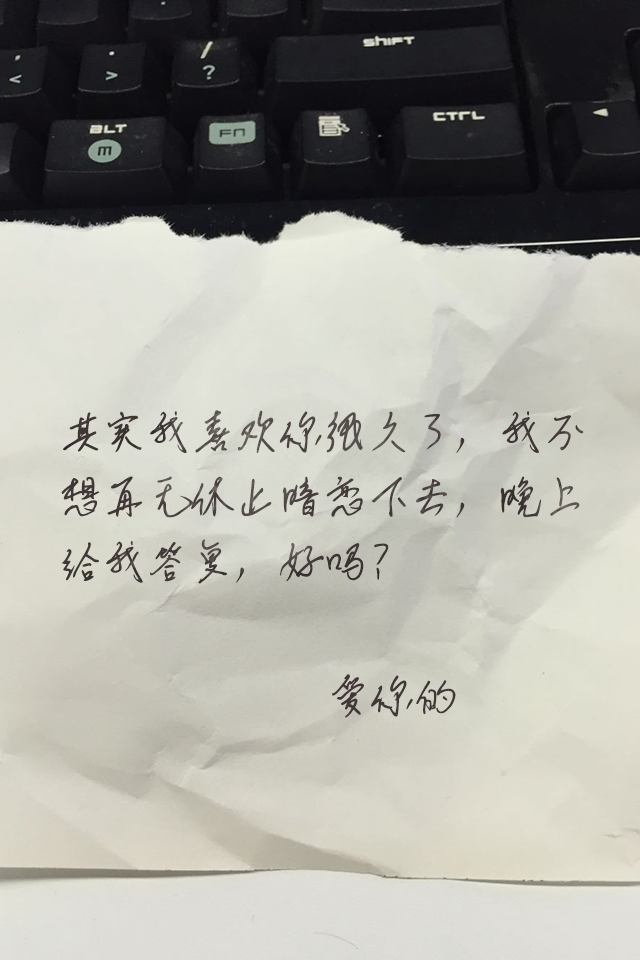 < >
/ ?
SHIFT
ALT FN CTRL
M
其实我喜欢你很久了，我不
想再无休止暗恋下去，晚上
给我答复，好吗？
爱你的